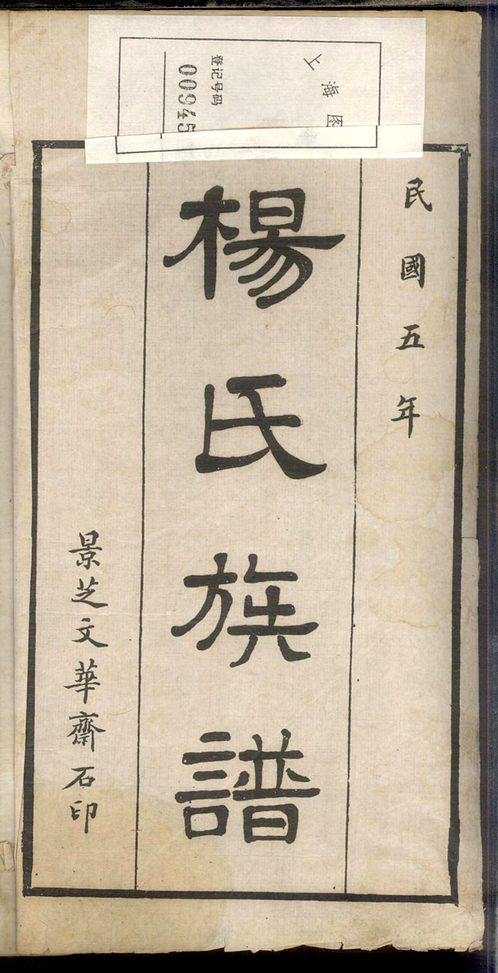 上海图
登记号码
00945
民國五年
楊氏族譜
景芝文華齋石印